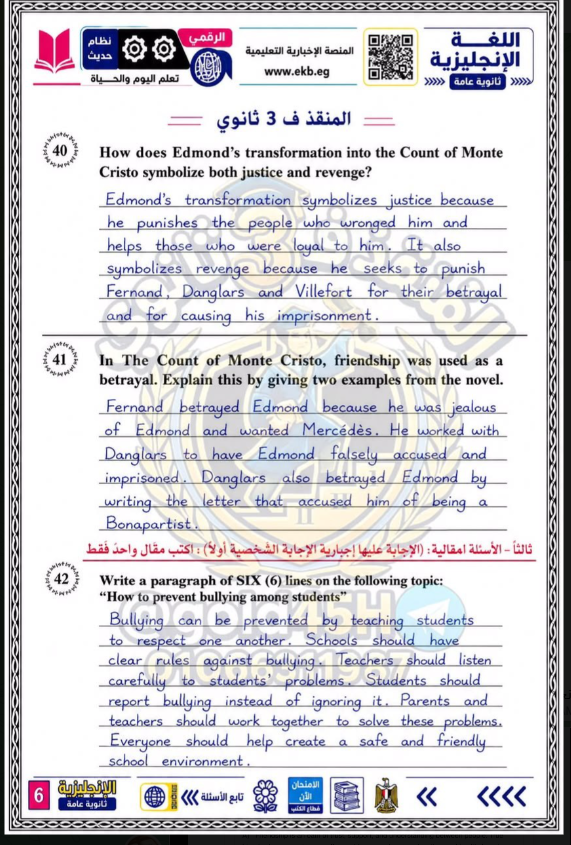 نظام
حديث
الرقمي
تعلم اليوم والحـــياة
المنصة الإخبارية التعليمية
www.ekb.eg
اللغــة
الإنجليزية
ثانوية عامة
المنقذ ف 3 ثانوي
40
How does Edmond's transformation into the Count of Monte
Cristo symbolize both justice and revenge?
Edmond's transformation symbolizes justice because
he punishes the people who wronged him and
helps those who were loyal to him. It also
symbolizes revenge because he seeks to punish
Fernand, Danglars and Villefort for their betrayal
and for causing his imprisonment.
41
In The Count of Monte Cristo, friendship was used as a
betrayal. Explain this by giving two examples from the novel.
Fernand betrayed Edmond because he was jealous
of Edmond and wanted Mercédès. He worked with
Danglars to have Edmond falsely accused and
imprisoned. Danglars also betrayed Edmond by
writing the letter that accused him of being a
Bonapartist.
ثالثاً - الأسئلة امقالية: (الإجابة عليها إجبارية الإجابة الشخصية أولاً) : اكتب مقال واحد فقط
42
Write a paragraph of SIX (6) lines on the following topic:
"How to prevent bullying among students"
Bullying can be prevented by teaching students
to respect one another. Schools should have
clear rules against bullying. Teachers should listen
carefully to students' problems. Students should
report bullying instead of ignoring it. Parents and
teachers should work together to solve these problems.
Everyone should help create a safe and friendly
school environment.
6
الإنجليزية
ثانوية عامة
تابع الأسئلة
الامتحان
الآن